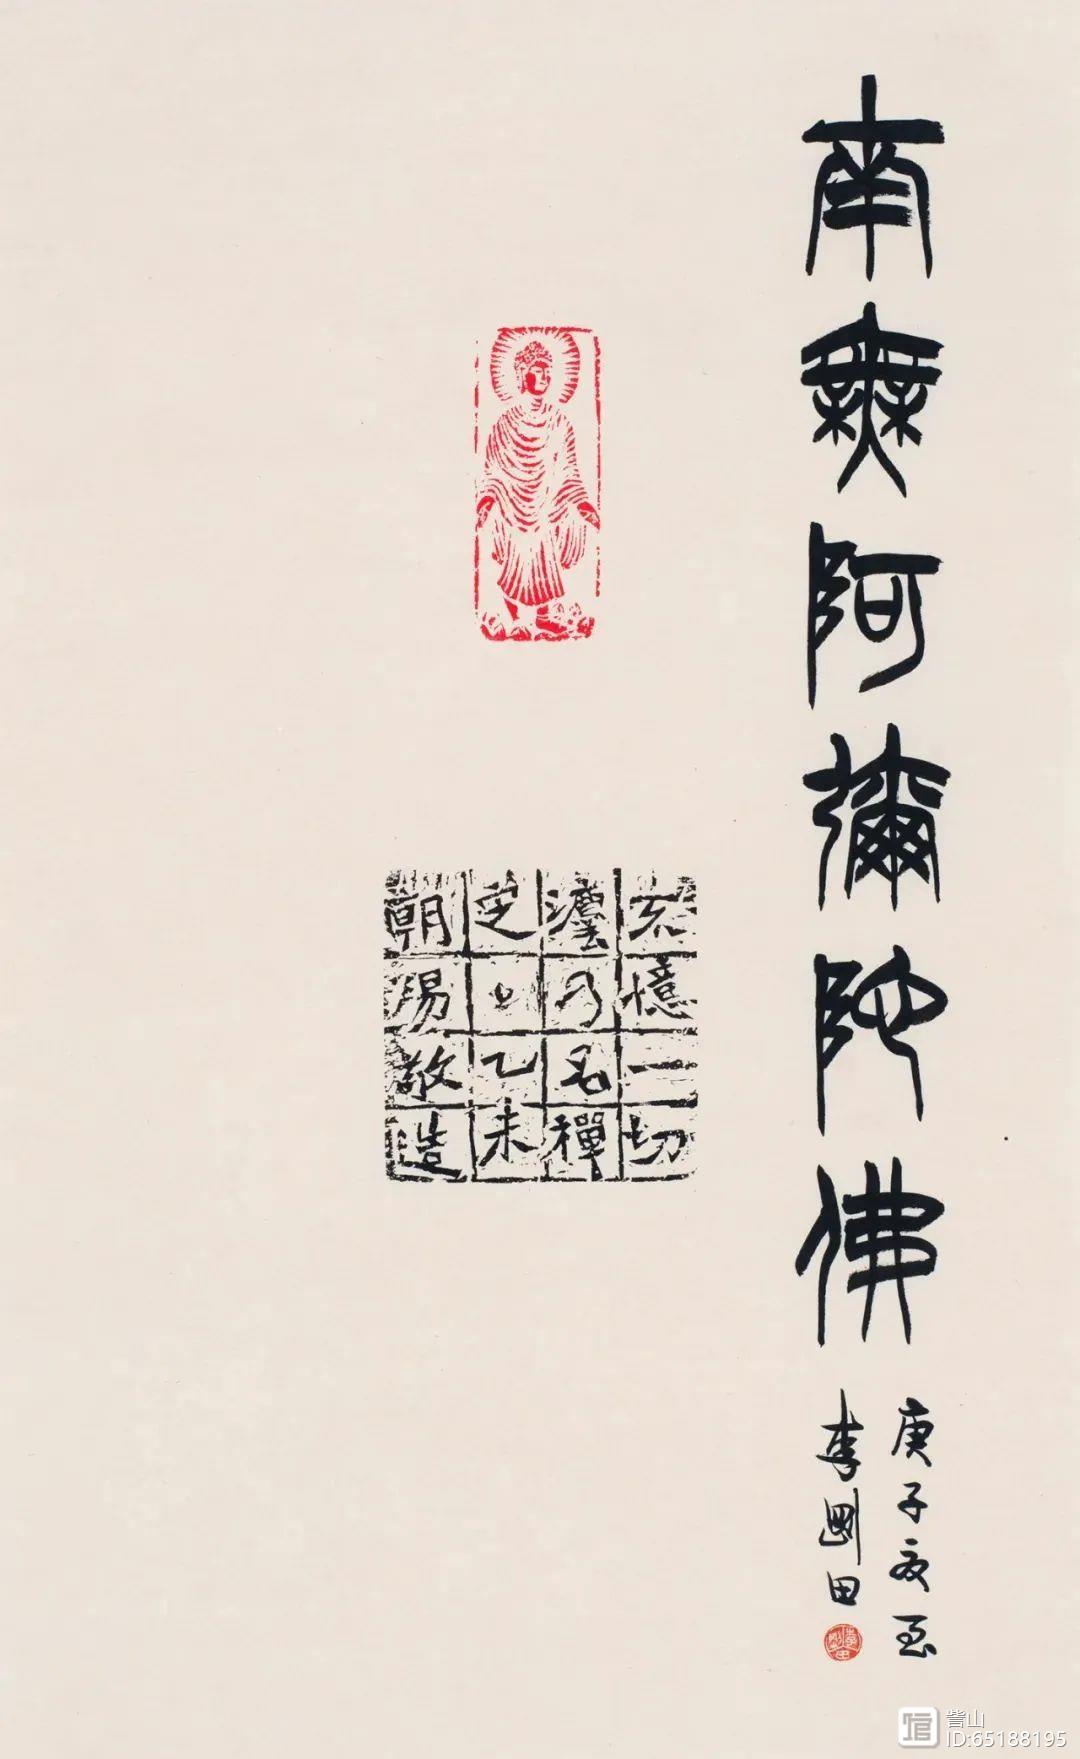 南無阿彌陀佛
庚子夏至
李剛田
无憶一切
灋乃名禪
定乙未
朝陽敬造
訾山
ID:65188195